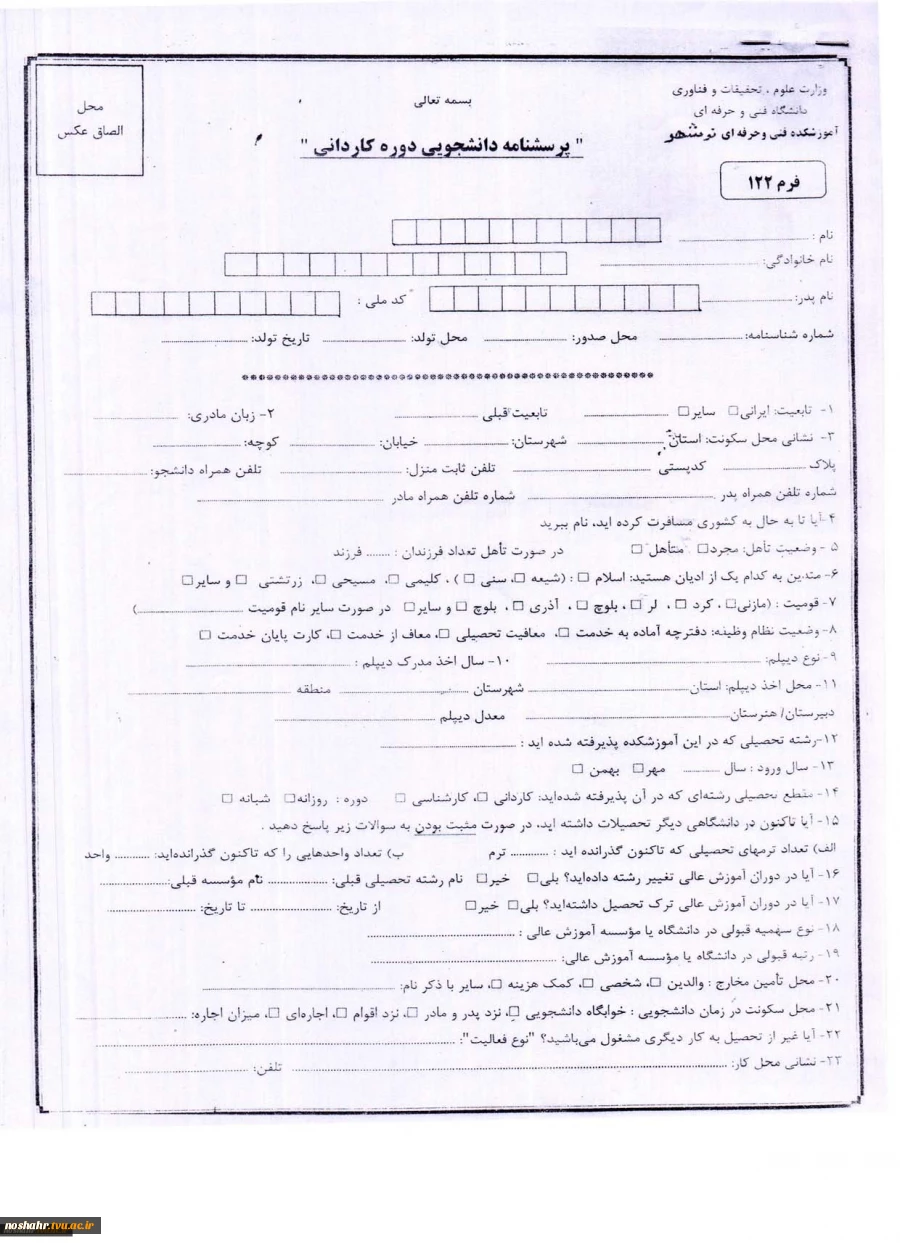 وزارت علوم ، تحقیقات و فناوری
دانشگاه فنی و حرفه ای
آموزشکده فنی و حرفه ای نوشهر
بسمه تعالی
محل
الصاق عکس
" پرسشنامه دانشجویی دوره کاردانی "
فرم ۱۲۲
نام :
نام خانوادگی:
نام پدر: کد ملی :
شماره شناسنامه: محل صدور: محل تولد: تاریخ تولد:
۱- تابعیت: ایرانی☐ سایر☐ تابعیت قبلی ۲- زبان مادری:
۳- نشانی محل سکونت: استان شهرستان: خیابان: کوچه:
پلاک کدپستی تلفن ثابت منزل: تلفن همراه دانشجو:
شماره تلفن همراه پدر شماره تلفن همراه مادر
۴-آیا تا به حال به کشوری مسافرت کرده اید، نام ببرید
۵ - وضعیت تأهل: مجرد☐ متأهل ☐ در صورت تأهل تعداد فرزندان : ....... فرزند
۶- متدین به کدام یک از ادیان هستید: اسلام ☐ : (شیعه ☐، سنی ☐ ) ، کلیمی ☐، مسیحی ☐، زرتشتی ☐ و سایر☐
۷- قومیت : (مازنی☐ ، کرد ☐، لر ☐، بلوچ ☐، آذری ☐، بلوچ ☐ و سایر☐ در صورت سایر نام قومیت ....................)
۸- وضعیت نظام وظیفه: دفترچه آماده به خدمت ☐، معافیت تحصیلی ☐، معاف از خدمت ☐، کارت پایان خدمت ☐
۹- نوع دیپلم: ۱۰- سال اخذ مدرک دیپلم :
۱۱- محل اخذ دیپلم: استان شهرستان منطقه
دبیرستان/ هنرستان معدل دیپلم
۱۲-رشته تحصیلی که در این آموزشکده پذیرفته شده اید :
۱۳- سال ورود : سال ............ مهر☐ بهمن ☐
۱۴- مقطع تحصیلی رشته‌ای که در آن پذیرفته شده‌اید: کاردانی ☐، کارشناسی ☐ دوره : روزانه☐ شبانه ☐
۱۵- آیا تاکنون در دانشگاهی دیگر تحصیلات داشته اید، در صورت مثبت بودن به سوالات زیر پاسخ دهید .
الف) تعداد ترمهای تحصیلی که تاکنون گذرانده اید : ............ ترم ب) تعداد واحدهایی را که تاکنون گذرانده‌اید: ........... واحد
۱۶- آیا در دوران آموزش عالی تغییر رشته داده‌اید؟ بلی☐ خیر☐ نام رشته تحصیلی قبلی: .................. نام مؤسسه قبلی:....................
۱۷- آیا در دوران آموزش عالی ترک تحصیل داشته‌اید؟ بلی☐ خیر☐ از تاریخ: ........................ تا تاریخ: ........................
۱۸- نوع سهمیه قبولی در دانشگاه یا مؤسسه آموزش عالی :
۱۹- رتبه قبولی در دانشگاه یا مؤسسه آموزش عالی:
۲۰- محل تأمین مخارج : والدین ☐، شخصی ☐، کمک هزینه ☐، سایر با ذکر نام:
۲۱- محل سکونت در زمان دانشجویی : خوابگاه دانشجویی ☐، نزد پدر و مادر ☐، نزد اقوام ☐، اجاره‌ای ☐، میزان اجاره:
۲۲- آیا غیر از تحصیل به کار دیگری مشغول می‌باشید؟ "نوع فعالیت":
۲۳- نشانی محل کار: تلفن:
noshahr.tvu.ac.ir